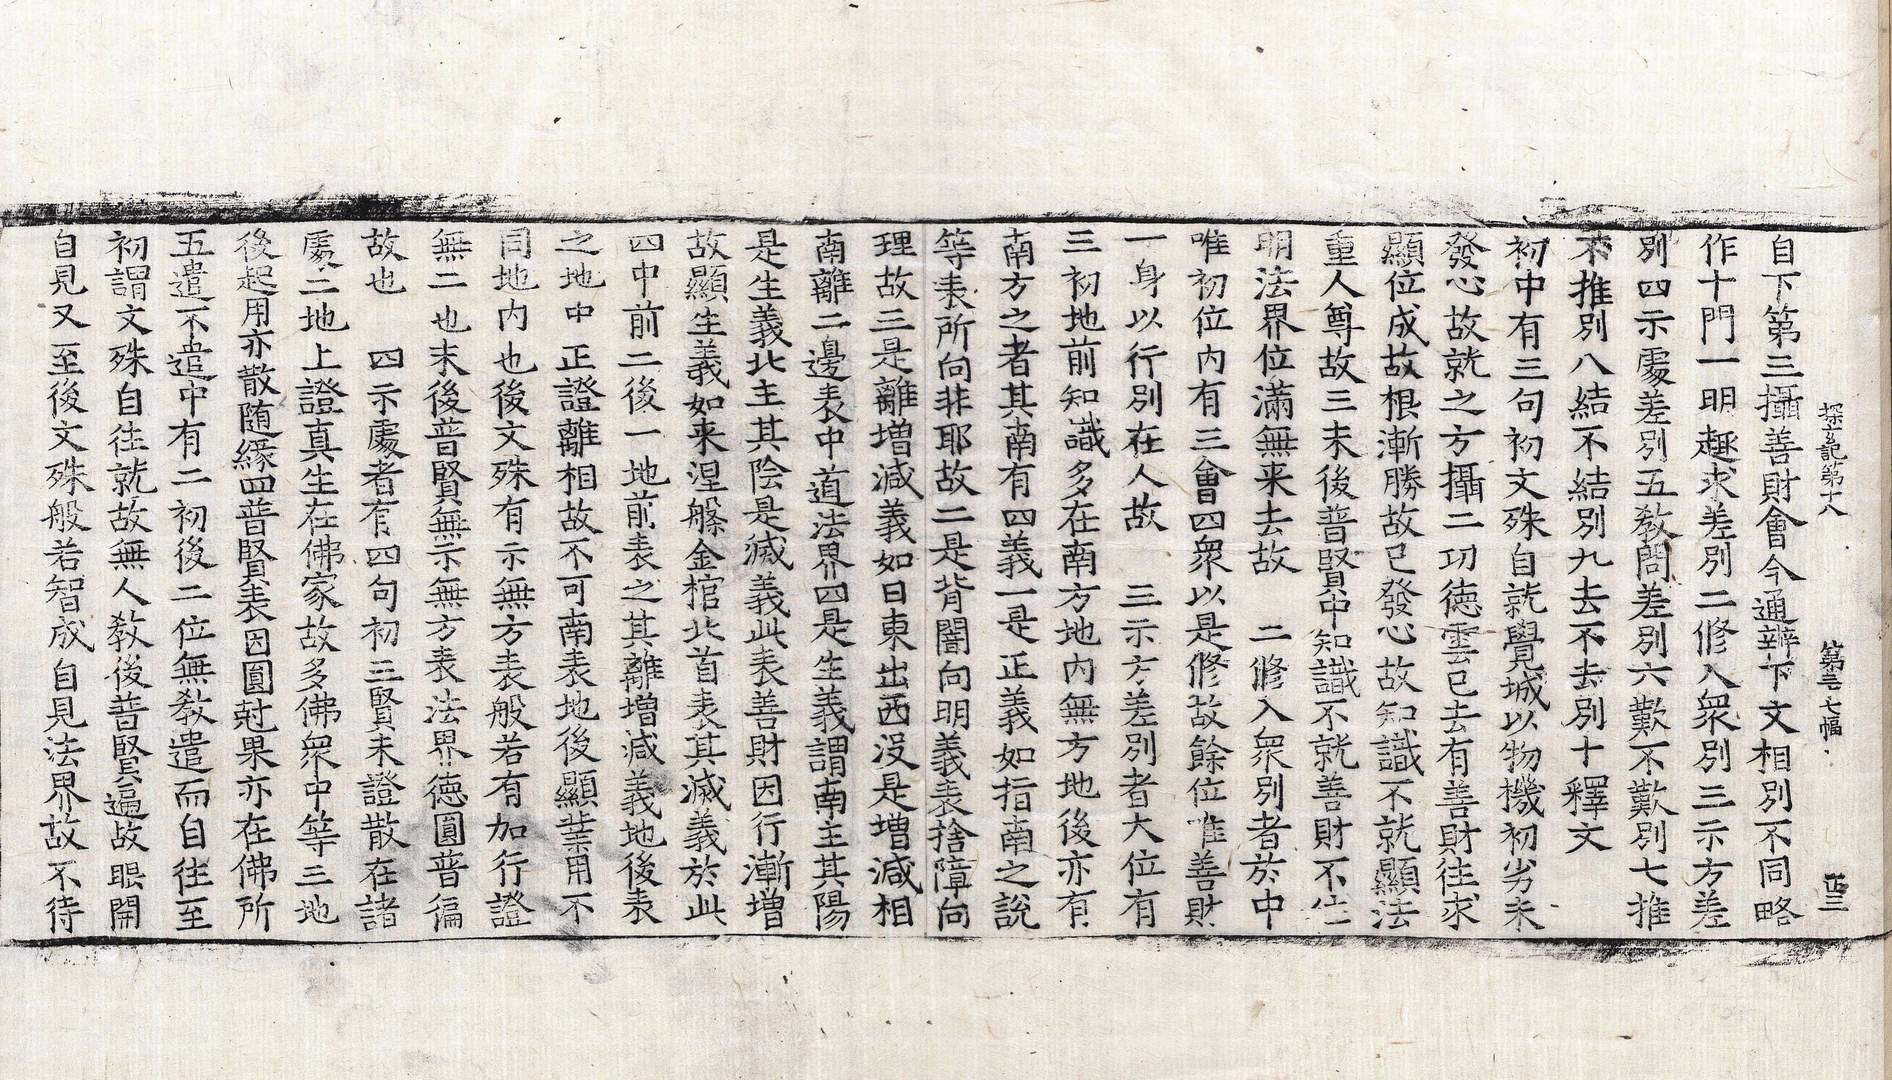 探玄記第十八　第三七幅　正三
自下第三攝善財會今通辨下文相別不同略
作十門一明趣求差別二修入衆別三示方差
別四示處差別五教問差別六歎不歎別七推
不推別八結不結別九去不去別十釋文
初中有三句初文殊自就覺城以物機初劣未
發心故就之方攝二功徳雲已去有善財往求
顯位成故根漸勝故已發心故知識不就顯法
重人尊故三末後普賢中知識不就善財不往
明法界位滿無来去故　二修入衆別者於中
唯初位内有三會四衆以是修故餘位唯善財
一身以行別在人故　三示方差別者大位有
三初地前知識多在南方地内無方地後亦有
南方之者其南有四義一是正義如指南之說
等表所向非耶故二是背闇向明義表捨障向
理故三是離増減義如日東出西没是増減相
南離二邊表中道法界四是生義謂南主其陽
是生義北主其陰是滅義此表善財因行漸増
故顯生義如来涅槃金棺北首表其滅義於此
四中前二後一地前表之其離増減義地後表
之地中正證離相故不可南表地後顯業用不
同地内也後文殊有示無方表般若有加行證
無二也末後普賢無示無方表法界徳圓普徧
故也　四示處者有四句初三賢未證散在諸
處二地上證真生在佛家故多佛衆中等三地
後起用亦散随緣四普賢表因圓尅果亦在佛所
五遣不遣中有二初後二位無教遣而自往至
初謂文殊自往就故無人教後普賢遍故眼開
自見又至後文殊般若智成自見法界故不待